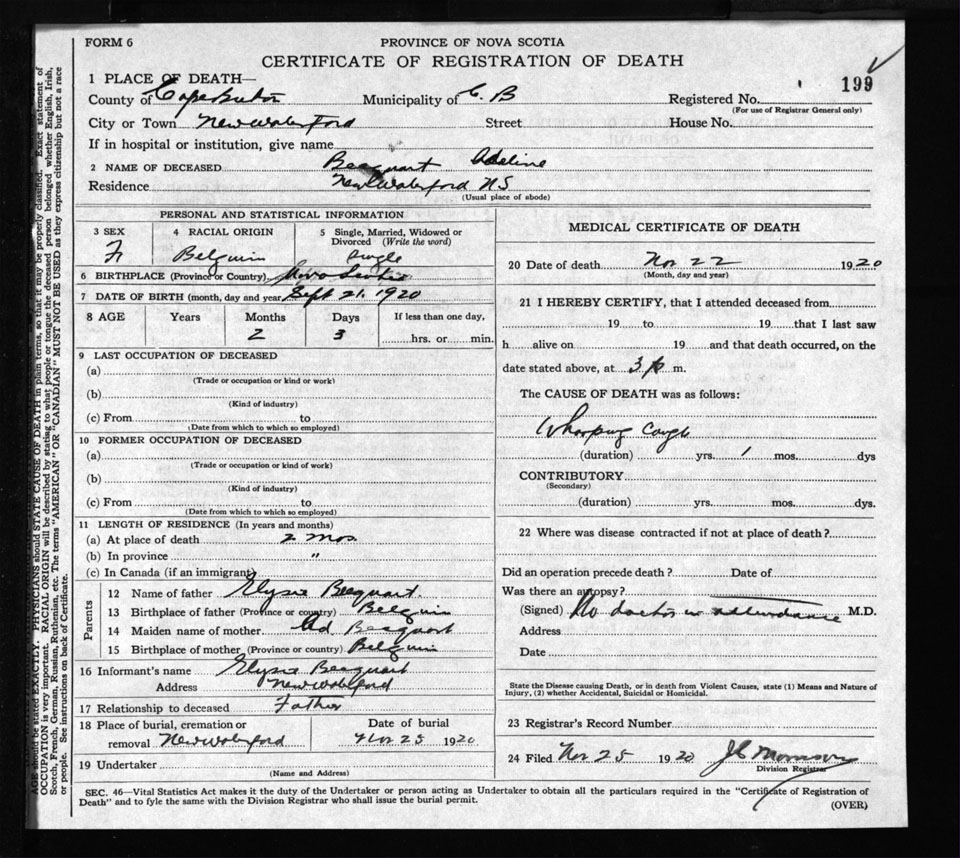 FORM 6
PROVINCE OF NOVA SCOTIA
CERTIFICATE OF REGISTRATION OF DEATH
199
1 PLACE OF DEATH—
County of Cape Breton Municipality of C. B Registered No.
(For use of Registrar General only)
City or Town New Waterford Street House No.
If in hospital or institution, give name
2 NAME OF DECEASED Becquart Adeline
Residence New Waterford N S
(Usual place of abode)
PERSONAL AND STATISTICAL INFORMATION
3 SEX 4 RACIAL ORIGIN 5 Single, Married, Widowed or Divorced (Write the word)
F Belguim single
6 BIRTHPLACE (Province or Country) Nova Scotia
7 DATE OF BIRTH (month, day and year) Sept 21, 1920
8 AGE Years Months Days If less than one day,
2 3 hrs. or min.
9 LAST OCCUPATION OF DECEASED
(a)
(Trade or occupation or kind or work)
(b)
(Kind of industry)
(c) From to
(Date from which to which so employed)
10 FORMER OCCUPATION OF DECEASED
(a)
(Trade or occupation or kind of work)
(b)
(Kind of industry)
(c) From to
(Date from which to which so employed)
11 LENGTH OF RESIDENCE (In years and months)
(a) At place of death 2 mos.
(b) In province "
(c) In Canada (if an immigrant)
Parents
12 Name of father Elysie Becquart.
13 Birthplace of father (Province or country) Belguim
14 Maiden name of mother Ad Becquart
15 Birthplace of mother (Province or country) Belguim
16 Informant's name Elysie Becquart
Address New Waterford
17 Relationship to deceased Father
18 Place of burial, cremation or Date of burial
removal New Waterford Nov 23 1920
19 Undertaker
(Name and Address)
MEDICAL CERTIFICATE OF DEATH
20 Date of death Nov 22 1920
(Month, day and year)
21 I HEREBY CERTIFY, that I attended deceased from
19 to 19 that I last saw
h alive on 19 and that death occurred, on the
date stated above, at 3 p m.
The CAUSE OF DEATH was as follows:
Whooping Cough
(duration) yrs. 1 mos. dys
CONTRIBUTORY
(Secondary)
(duration) yrs. mos. dys.
22 Where was disease contracted if not at place of death?
Did an operation precede death? Date of
Was there an autopsy?
(Signed) No doctor in attendance M.D.
Address
Date
State the Disease causing Death, or in death from Violent Causes, state (1) Means and Nature of
Injury, (2) whether Accidental, Suicidal or Homicidal.
23 Registrar's Record Number
24 Filed Nov 25 1920 J C Morrison
Division Registrar
SEC. 46—Vital Statistics Act makes it the duty of the Undertaker or person acting as Undertaker to obtain all the particulars required in the "Certificate of Registration of
Death" and to fyle the same with the Division Registrar who shall issue the burial permit.
(OVER)
AGE should be stated EXACTLY. PHYSICIANS should STATE CAUSE OF DEATH in plain terms, so that it may be properly classified. Exact statement of
OCCUPATION is very important. RACIAL ORIGIN will be described by stating to what people or tongue the deceased person belonged whether English, Irish,
Scotch, French, German, Russian, Ruthenian, etc. The terms "AMERICAN" OR "CANADIAN" MUST NOT BE USED as they express citizenship but not a race
or people. See instructions on back of Certificate.